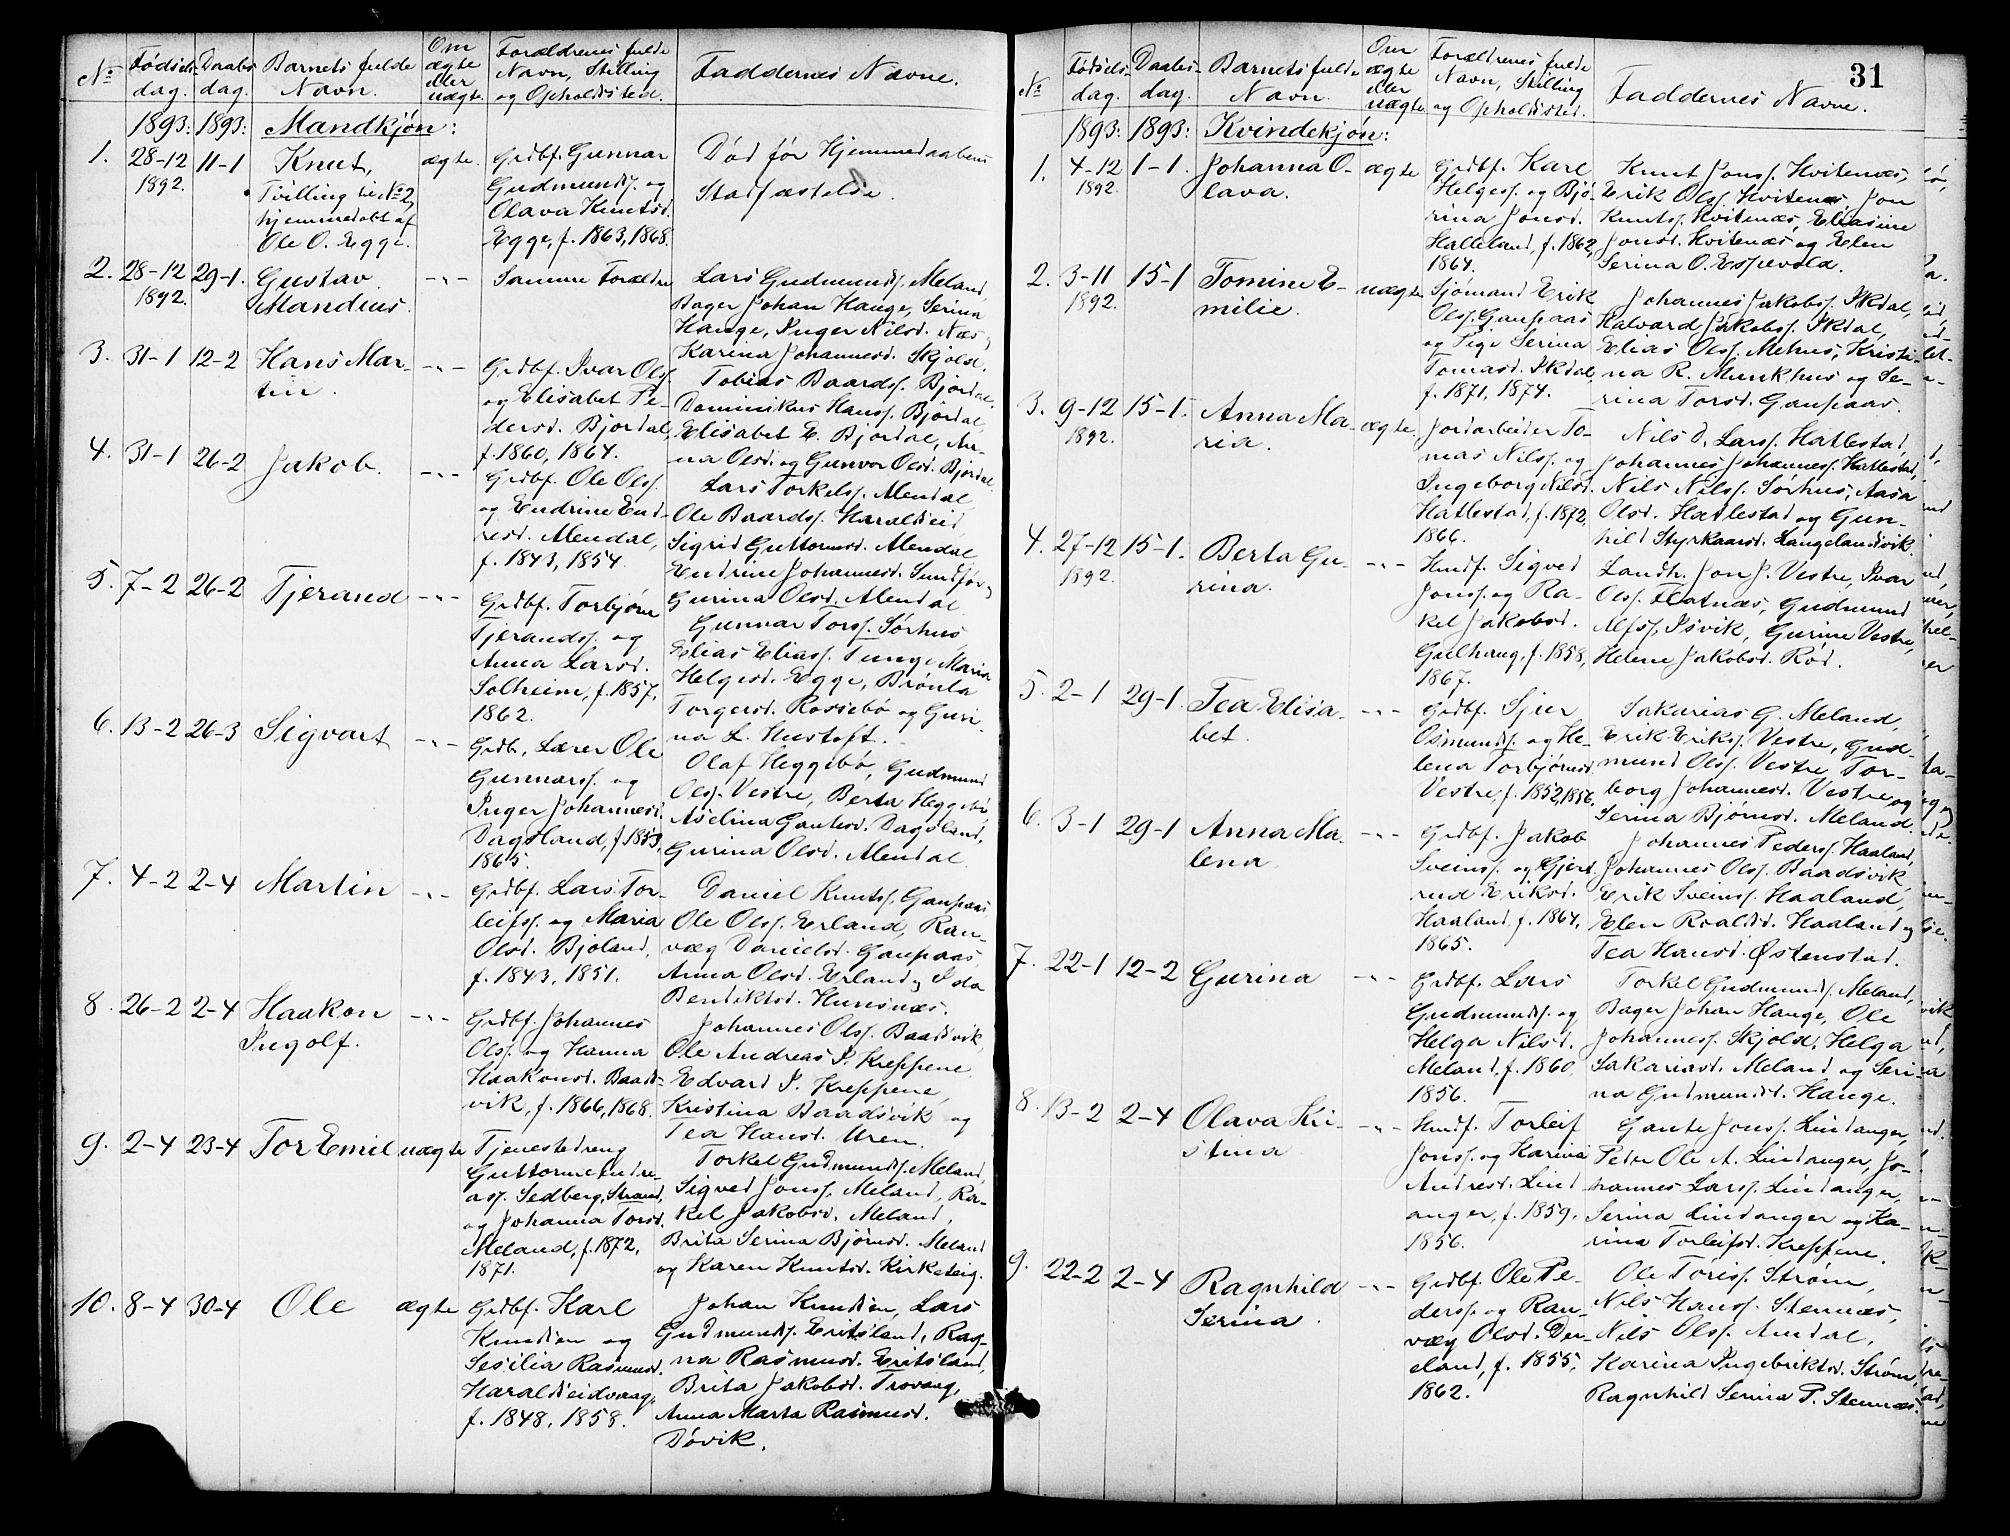 No
Fødsels-
dag.
Daabs-
dag.
Barnets fulde
Navn.
Om
ægte
eller
uægte.
Forældrenes fulde
Navn, Stilling
og Opholdsted.
Faddernes Navne.
1893: 1893: Mandkjøn:
1. 28-12
1892.
11-1
Knut,
Tvilling til No 2,
hjemmedøbt af
Ole O. Egge.
ægte.
Grdbf. Gunnar
Gudmunds. og
Olava Knutsd.
Egge, f. 1863, 1868.
Død før Hjemmedaabens
Stadfæstelse.
2. 28-12
1892.
29-1.
Gustav
Mandius.
-"-
Samme Forældre
Lars Gudmunds. Meland,
Bager Johan Hauge, Serina
Hauge, Inger Nilsd. Næs,
Karina Johannesd. Skjold.
3. 31-1 12-2
Hans Mar-
tin.
-"-
Grdbf. Ivar Ols.
og Elisabet Pe-
dersd. Bjordal,
f. 1860, 1864.
Tobias Baards. Bjordal,
Dominikus Hans. Bjordal,
Elisabet E. Bjordal, An-
na Olsd. og Gunvor Olsd. Bjordal.
4. 31-1 26-2
Jakob.
-"-
Grdbf. Ole Ols.
og Endrine End-
resd. Alendal,
f. 1843, 1854.
Lars Torkels. Alendal
Ole Baards. Haraldseid
Sigrid Guttormsd. Alendal
Endrine Johannesd. Sundfør,
Gurina Olsd. Alendal.
5. 7-2 26-2
Tjerand
-"-
Grdbf. Torbjørn
Tjerands. og
Anna Larsd.
Solheim, f. 1857,
1862.
Gunnar Tors. Sørhus
Elias Elias. Tunge, Maria
Helgesd. Egge, Brønla
Torgersd. Rossebø og Guri-
na L. Hustoft.
6. 13-2 26-3
Sigvart
-"-
Grdb., Lærer Ole
Gunnars. og
Inger Johannesd.
Dagsland, f. 1853,
1865.
Olaf Heggebø, Gudmund
Ols. Vestre, Berta Heggebø
Aselina Gautesd. Dagsland,
Gurina Olsd. Alendal.
7. 4-2 2-4
Martin
-"-
Grdbf. Lars Tor-
leifs. og Maria
Olsd. Bjoland,
f. 1843, 1851.
Daniel Knuts. Gaupaas
Ole Ols. Erland, Ran-
væg Danielsd. Gaupaas
Anna Olsd. Erland og Ida
Bendiktsd. Hunsnæs.
8. 26-2 2-4
Haakon
Ingolf.
-"-
Grdbf. Johannes
Ols. og Hanna
Haakonsd. Baads-
vik, f. 1866, 1868.
Johannes Ols. Baadsvik,
Ole Andreas P. Kreppene
Edvard P. Kreppene,
Kristina Baadsvik og
Tea Hansd. Uren.
9. 2-4 23-4
Tor Emil
uægte
Tjenestedreng
Guttorm Endre-
as. Sedberg, Strand,
og Johanna Torsd.
Meland, f. 1872,
1871.
Torkel Gudmunds. Meland,
Sigved Jons. Meland, Ra-
kel Jakobsd. Meland,
Brita Serina Bjørnsd. Meland
og Karen Knutsd. Kirketeig.
10. 8-4 30-4
Ole
ægte
Grdbf. Karl
Knudsen og
Sesilia Rasmusd.
Haraldseidvaag,
f. 1848, 1858.
Johan Knudsen, Lars
Gudmunds. Eritsland, Rag-
na Rasmusd. Eritsland,
Brita Jakobsd. Trovaag,
Anna Marta Rasmusd.
Døvik.
31
No
Fødsels-
dag.
Daabs-
dag.
Barnets fulde
Navn.
Om
ægte
eller
uægte
Forældrenes fulde
Navn, Stilling
og Opholdsted.
Faddernes Navne.
1893: 1893: Kvindekjøn:
1. 4-12
1892.
1-1.
Johanna O-
lava.
ægte
Grdbf. Karl
Helges. og Bjø-
rina Jonsd.
Halleland, f. 1862,
1864.
Knut Jons. Hvitenæs,
Erik Ols. Hvitenæs, Jon
Knuts. Hvitenæs, Eliasine
Jonsd. Hvitenæs og Elen
Serina O. Espevold.
2. 3-11
1892.
15-1
Tomine E-
milie.
uægte
Sjømand Erik
Ols. Gaupaas
og Pige Serina
Tomasd. Ilsdal,
f. 1871, 1874.
Johannes Jakobs. Ikdal,
Halvard Jakobs. Ikdal,
Elias Ols. Mehus, Kristi-
na R. Munkhus og Se-
rina Torsd. Gaupaas.
3. 9-12
1892.
15-1.
Anna Ma-
ria.
ægte.
Jordarbeider To-
mas Nils. og
Ingeborg Nilsd.
Hatlestad, f. 1872,
1866.
Nils D. Lars. Hatlestad,
Johannes Johannes. Hatlestad,
Nils Nils. Sørhus, Aasa
Olsd. Hatlestad og Gun-
hild Styrkaarsd. Langelandsvik.
4. 27-12
1892.
15-1.
Berta Gu-
rina.
-"-
Husf. Sigved
Jons. og Ra-
kel Jakobsd.
Gulhaug, f. 1858,
1867.
Landh. Jon J. Vestre, Ivar
Ols. Flatnæs, Gudmund
Alfs. Isvik, Gurine Vestre,
Helene Jakobsd. Rød.
5. 2-1 29-1.
Tea Elisa-
bet.
-"-
Grdbf. Sjur
Osmunds. og He-
lena Torbjørnsd.
Vestre, f. 1852, 1856.
Sakarias G. Meland,
Erik Eriks. Vestre, Gud-
mund Ols. Vestre, Tor-
borg Johannesd. Vestre og
Serina Bjørnsd. Meland.
6. 3-1 29-1
Anna Ma-
lena
-"-
Grdbf. Jakob
Sveins. og Gjert-
rud Eriksd.
Haaland, f. 1864,
1865.
Johannes Peders. Haaland,
Johannes Ols. Baadsvik,
Erik Sveins. Haaland,
Elen Roaldsd. Haaland og
Tea Hansd. Østenstad.
7. 22-1 12-2
Gurina
-"-
Grdbf. Lars
Gudmunds. og
Helga Nilsd.
Meland, f. 1860
1856.
Torkel Gudmunds. Meland,
Bager Johan Hauge, Ole
Johannes. Skjold, Helga
Sakariasd. Meland og Seri-
na Gudmundsd. Hauge.
8. 13-2 2-4
Olava Kri-
stina
-"-
Husf. Torleif
Jons. og Karina
Andresd. Lind-
anger, f. 1859,
1856.
Gaute Jons. Lindanger,
Peder Ole A. Lindanger, Jo-
hannes Lars. Lindanger,
Serina Lindanger og Ka-
rina Torleifsd. Kreppene.
9. 22-2 2-4
Ragnhild
Serina.
-"-
Grdbf. Ole Pe-
ders. og Ran-
væg Olsd. Due-
eland, f. 1855,
1862.
Ole Toris. Strøm,
Nils Hans. Stennæs,
Nils Ols. Amdal,
Karina Ingebriktsd. Strøm,
Ragnhild Serina P. Stennæs.